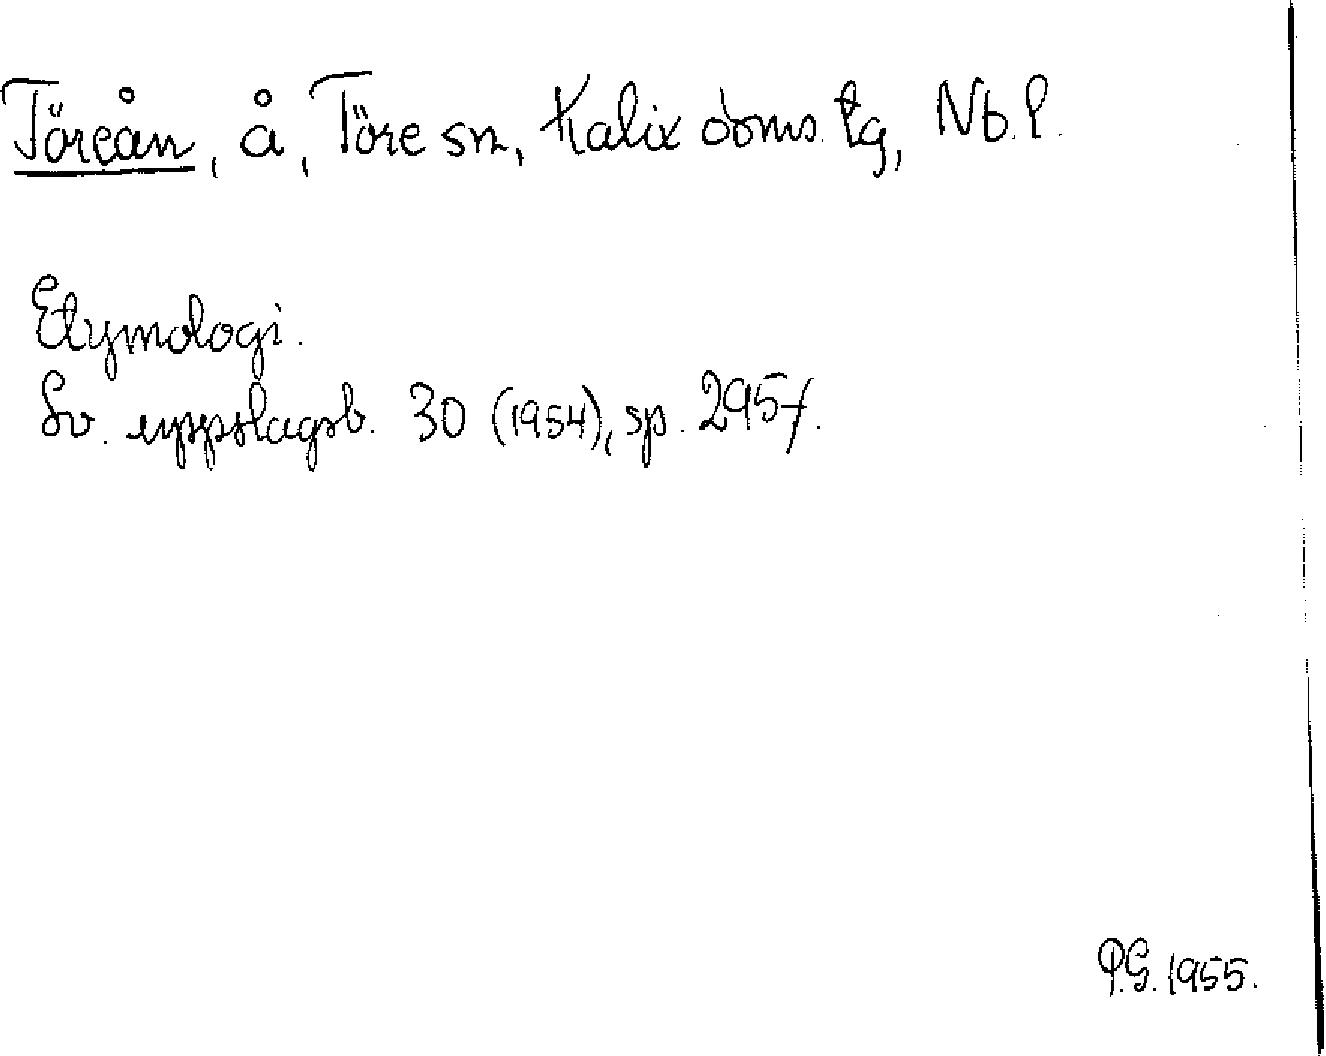 Töreån, å, Töre sn, Kalix doms. tg, Nb. l.
Etymologi.
Sv. uppslagsb. 30 (1954), sp. 295 f.
P.G. 1955.